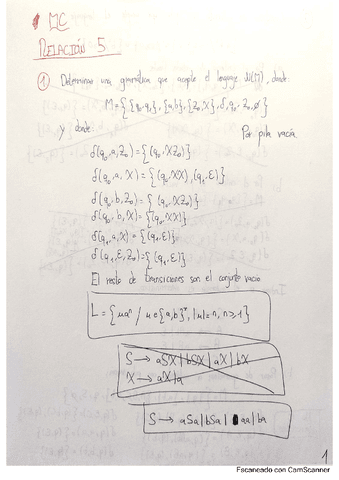 MC
RELACIÓN 5
① Determinar una gramática que acepte el lenguaje N(M), donde:
M = {{q₀,q₁}, {a,b}, {Z₀,X}, δ, q₀, Z₀, ∅}
y donde: Por pila vacía.
δ(q₀,a,Z₀) = {(q₀, XZ₀)}
δ(q₀,a,X) = {(q₀,XX), (q₁,ε)}
δ(q₀,b,Z₀) = {(q₀, XZ₀)}
δ(q₀,b,X) = {(q₀,XX)}
δ(q₁,a,X) = {(q₁,ε)}
δ(q₁,ε,Z₀) = {(q₁,ε)}
El resto de transiciones son el conjunto vacío
L = {uaⁿ / u∈{a,b}*, |u|=n, n≥1}
S → aSX | bSX | aX | bX
X → aX | a
S → aSa | bSa | aa | ba
1
Escaneado con CamScanner